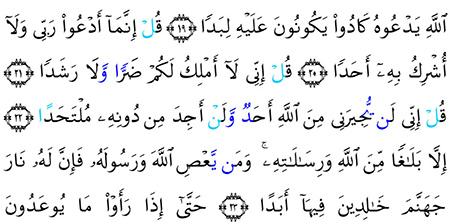 ٱللَّهِ يَدْعُوهُ كَادُوا۟ يَكُونُونَ عَلَيْهِ لِبَدًا ﴿١٩﴾ قُلْ إِنَّمَآ أَدْعُوا۟ رَبِّى وَلَآ
أُشْرِكُ بِهِۦٓ أَحَدًا ﴿٢٠﴾ قُلْ إِنِّى لَآ أَمْلِكُ لَكُمْ ضَرًّا وَلَا رَشَدًا ﴿٢١﴾
قُلْ إِنِّى لَن يُجِيرَنِى مِنَ ٱللَّهِ أَحَدٌ وَلَنْ أَجِدَ مِن دُونِهِۦ مُلْتَحَدًا ﴿٢٢﴾
إِلَّا بَلَٰغًا مِّنَ ٱللَّهِ وَرِسَٰلَٰتِهِۦ ۚ وَمَن يَعْصِ ٱللَّهَ وَرَسُولَهُۥ فَإِنَّ لَهُۥ نَارَ
جَهَنَّمَ خَٰلِدِينَ فِيهَآ أَبَدًا ﴿٢٣﴾ حَتَّىٰٓ إِذَا رَأَوْا۟ مَا يُوعَدُونَ